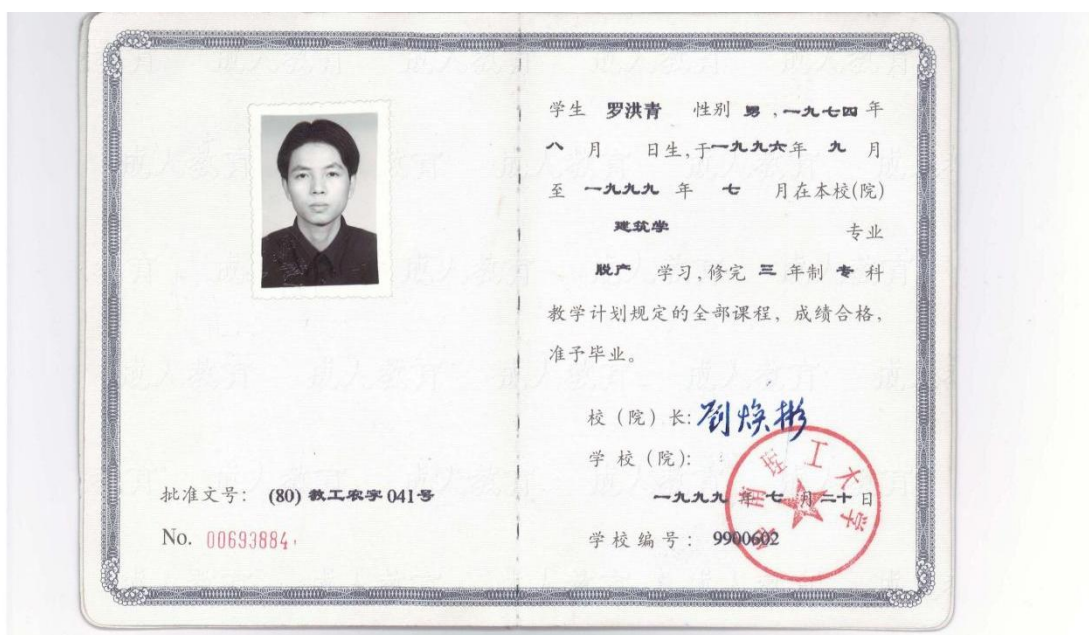 批准文号: (80) 教工农字 041号
No. 00693884
学生 罗洪青 性别 男 , 一九七四 年
八 月 日生, 于一九九六年 九 月
至 一九九九 年 七 月在本校(院)
建筑学 专业
脱产 学习, 修完 三 年制 专 科
教学计划规定的全部课程, 成绩合格,
准予毕业。
校 (院) 长: 刘焕彬
学 校 (院):
华南理工大学
一九九九 年 七 月 二十 日
学 校 编 号: 9900602
成人教育